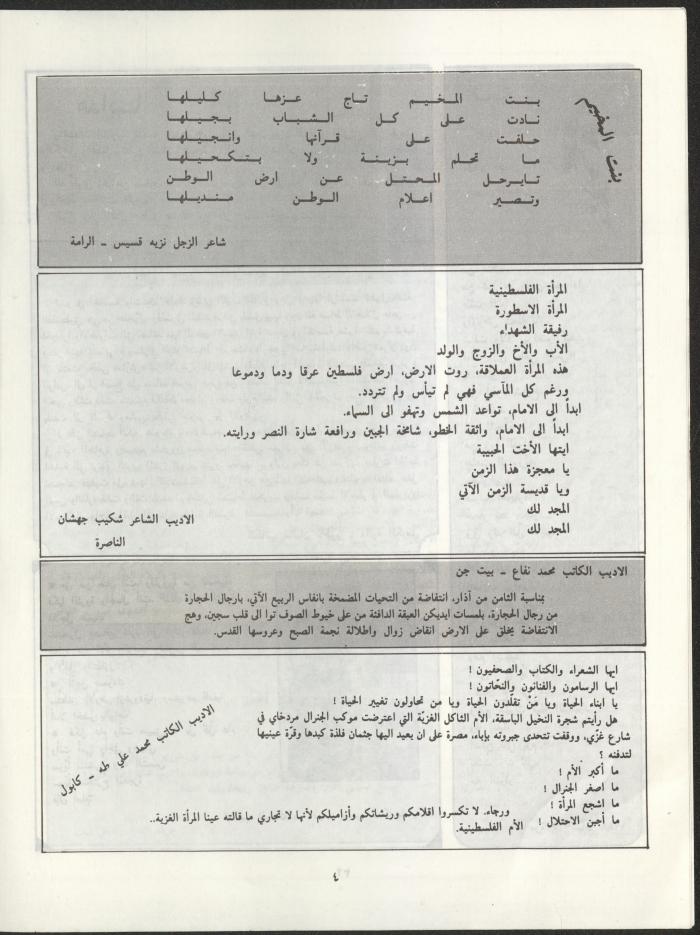 بنت المخيم
بنت المخيم تاج عزها كليلها
نادت على كل الشباب بجيلها
حلفت على قرآنها وانجيلها
ما تحلم بزينة ولا بتكحيلها
تايرحل المحتل عن ارض الوطن
وتصير اعلام الوطن منديلها
شاعر الزجل نزيه قسيس ــ الرامة
المرأة الفلسطينية
المرأة الاسطورة
رفيقة الشهداء
الأب والأخ والزوج والولد
هذه المرأة العملاقة، روت الارض، ارض فلسطين عرقا ودما ودموعا
ورغم كل المآسي فهي لم تيأس ولم تتردد.
ابداً الى الامام، تواعد الشمس وتهفو الى السماء.
ابداً الى الامام، واثقة الخطو، شامخة الجبين ورافعة شارة النصر ورايته.
ايتها الأخت الحبيبة
يا معجزة هذا الزمن
ويا قديسة الزمن الآتي
المجد لك
المجد لك
الاديب الشاعر شكيب جهشان
الناصرة
الاديب الكاتب محمد نفاع ــ بيت جن
بمناسبة الثامن من آذار، انتفاضة من التحيات المضمخة بانفاس الربيع الآتي، بارجال الحجارة
من رجال الحجارة، بلمسات ايديكن العبقة الدافئة من على خيوط الصوف توا الى قلب سجين، وهج
الانتفاضة يخلق على الارض انقاض زوال واطلالة نجمة الصبح وعروسها القدس.
ايها الشعراء والكتاب والصحفيون !
ايها الرسامون والفنانون والنحّاتون !
يا ابناء الحياة ويا مَنْ تقلّدون الحياة ويا من تحاولون تغيير الحياة !
هل رأيتم شجرة النخيل الباسقة، الأم الثاكل الغزيّة التي اعترضت موكب الجنرال مردخاي في
شارع غزّي، ووقفت تتحدى جبروته بإباء، مصرة على ان يعيد اليها جثمان فلذة كبدها وقرّة عينيها
لتدفنه ؟
ما أكبر الأم !
ما اصغر الجنرال !
ما اشجع المرأة !
ما أجبن الاحتلال !
ورجاء. لا تكسروا اقلامكم وريشاتكم وأزاميلكم لأنها لا تجاري ما قالته عينا المرأة الغزية..
الأم الفلسطينية.
الاديب الكاتب محمد علي طه ــ كابول
٤